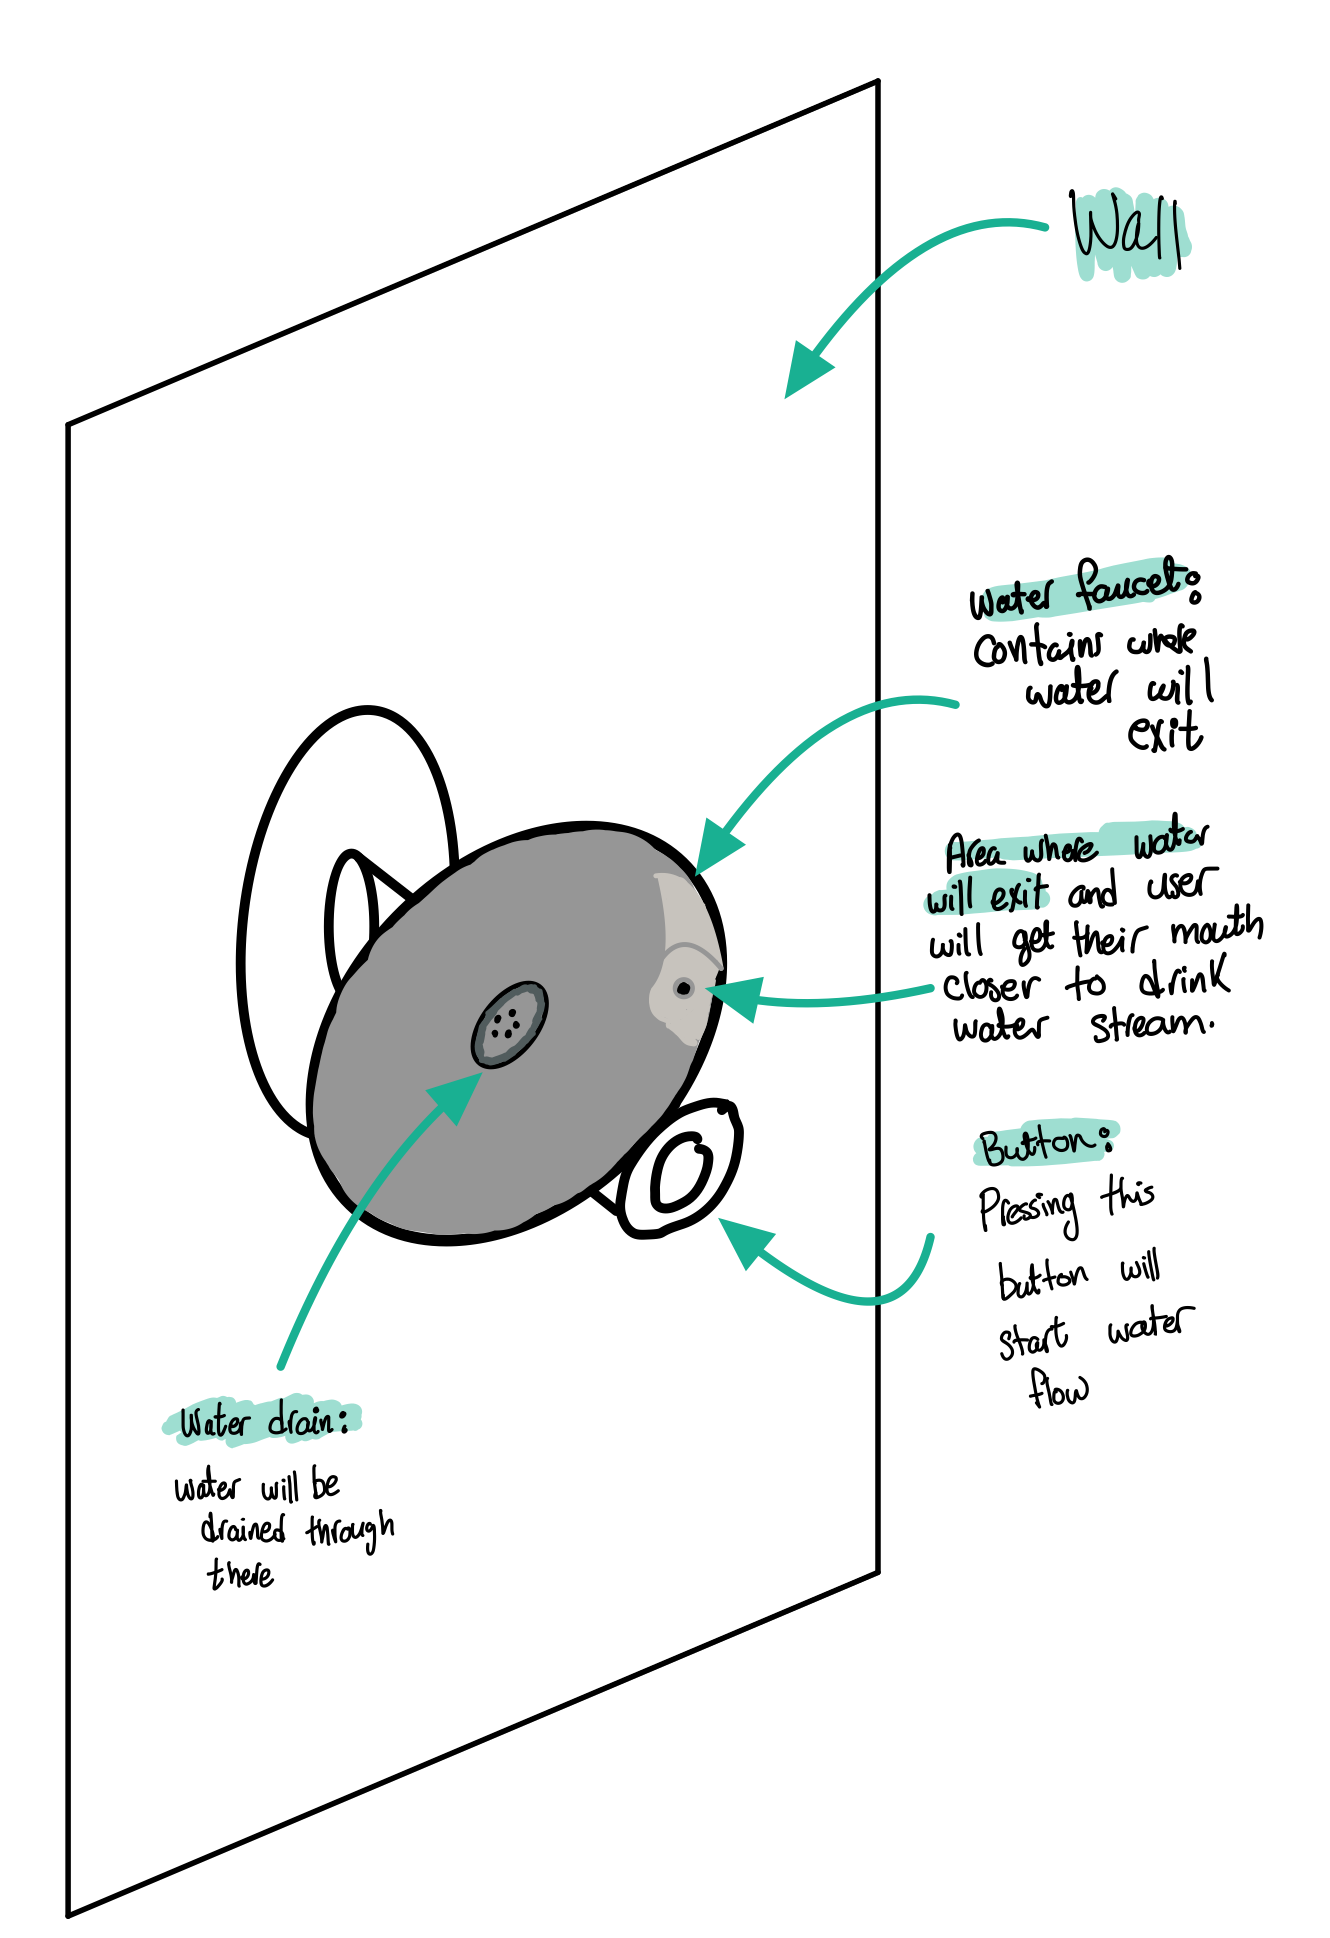 Wall
Water faucet:
Contains where
water will
exit
Area where water
will exit and user
will get their mouth
closer to drink
water stream.
Button:
Pressing this
button will
start water
flow
Water drain:
water will be
drained through
there